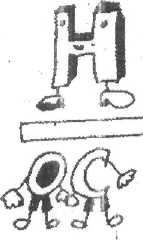 H
OC